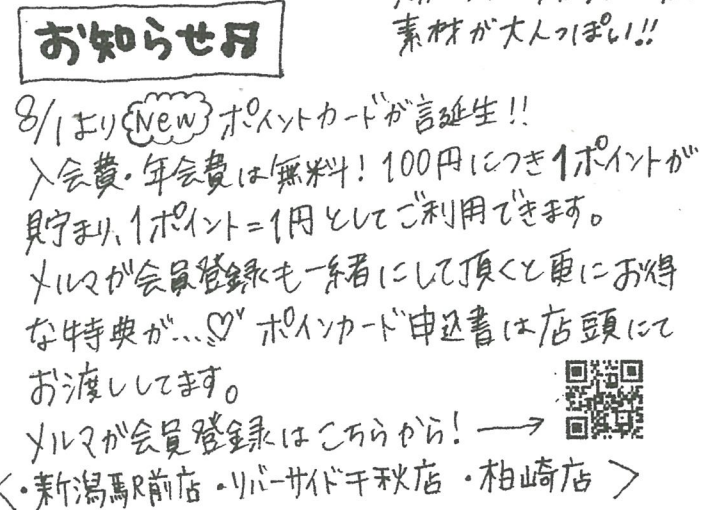 素材が大人っぽい!!
お知らせ♬
8/1より New ポイントカードが誕生!!
入会費・年会費は無料! 100円につき1ポイントが
貯まり、1ポイント=1円としてご利用できます。
メルマガ会員登録も一緒にして頂くと更にお得
な特典が…♡ ポインカード申込書は店頭にて
お渡ししてます。
メルマガ会員登録はこちらから! →
<・新潟駅前店 ・リバーサイド千秋店 ・柏崎店>